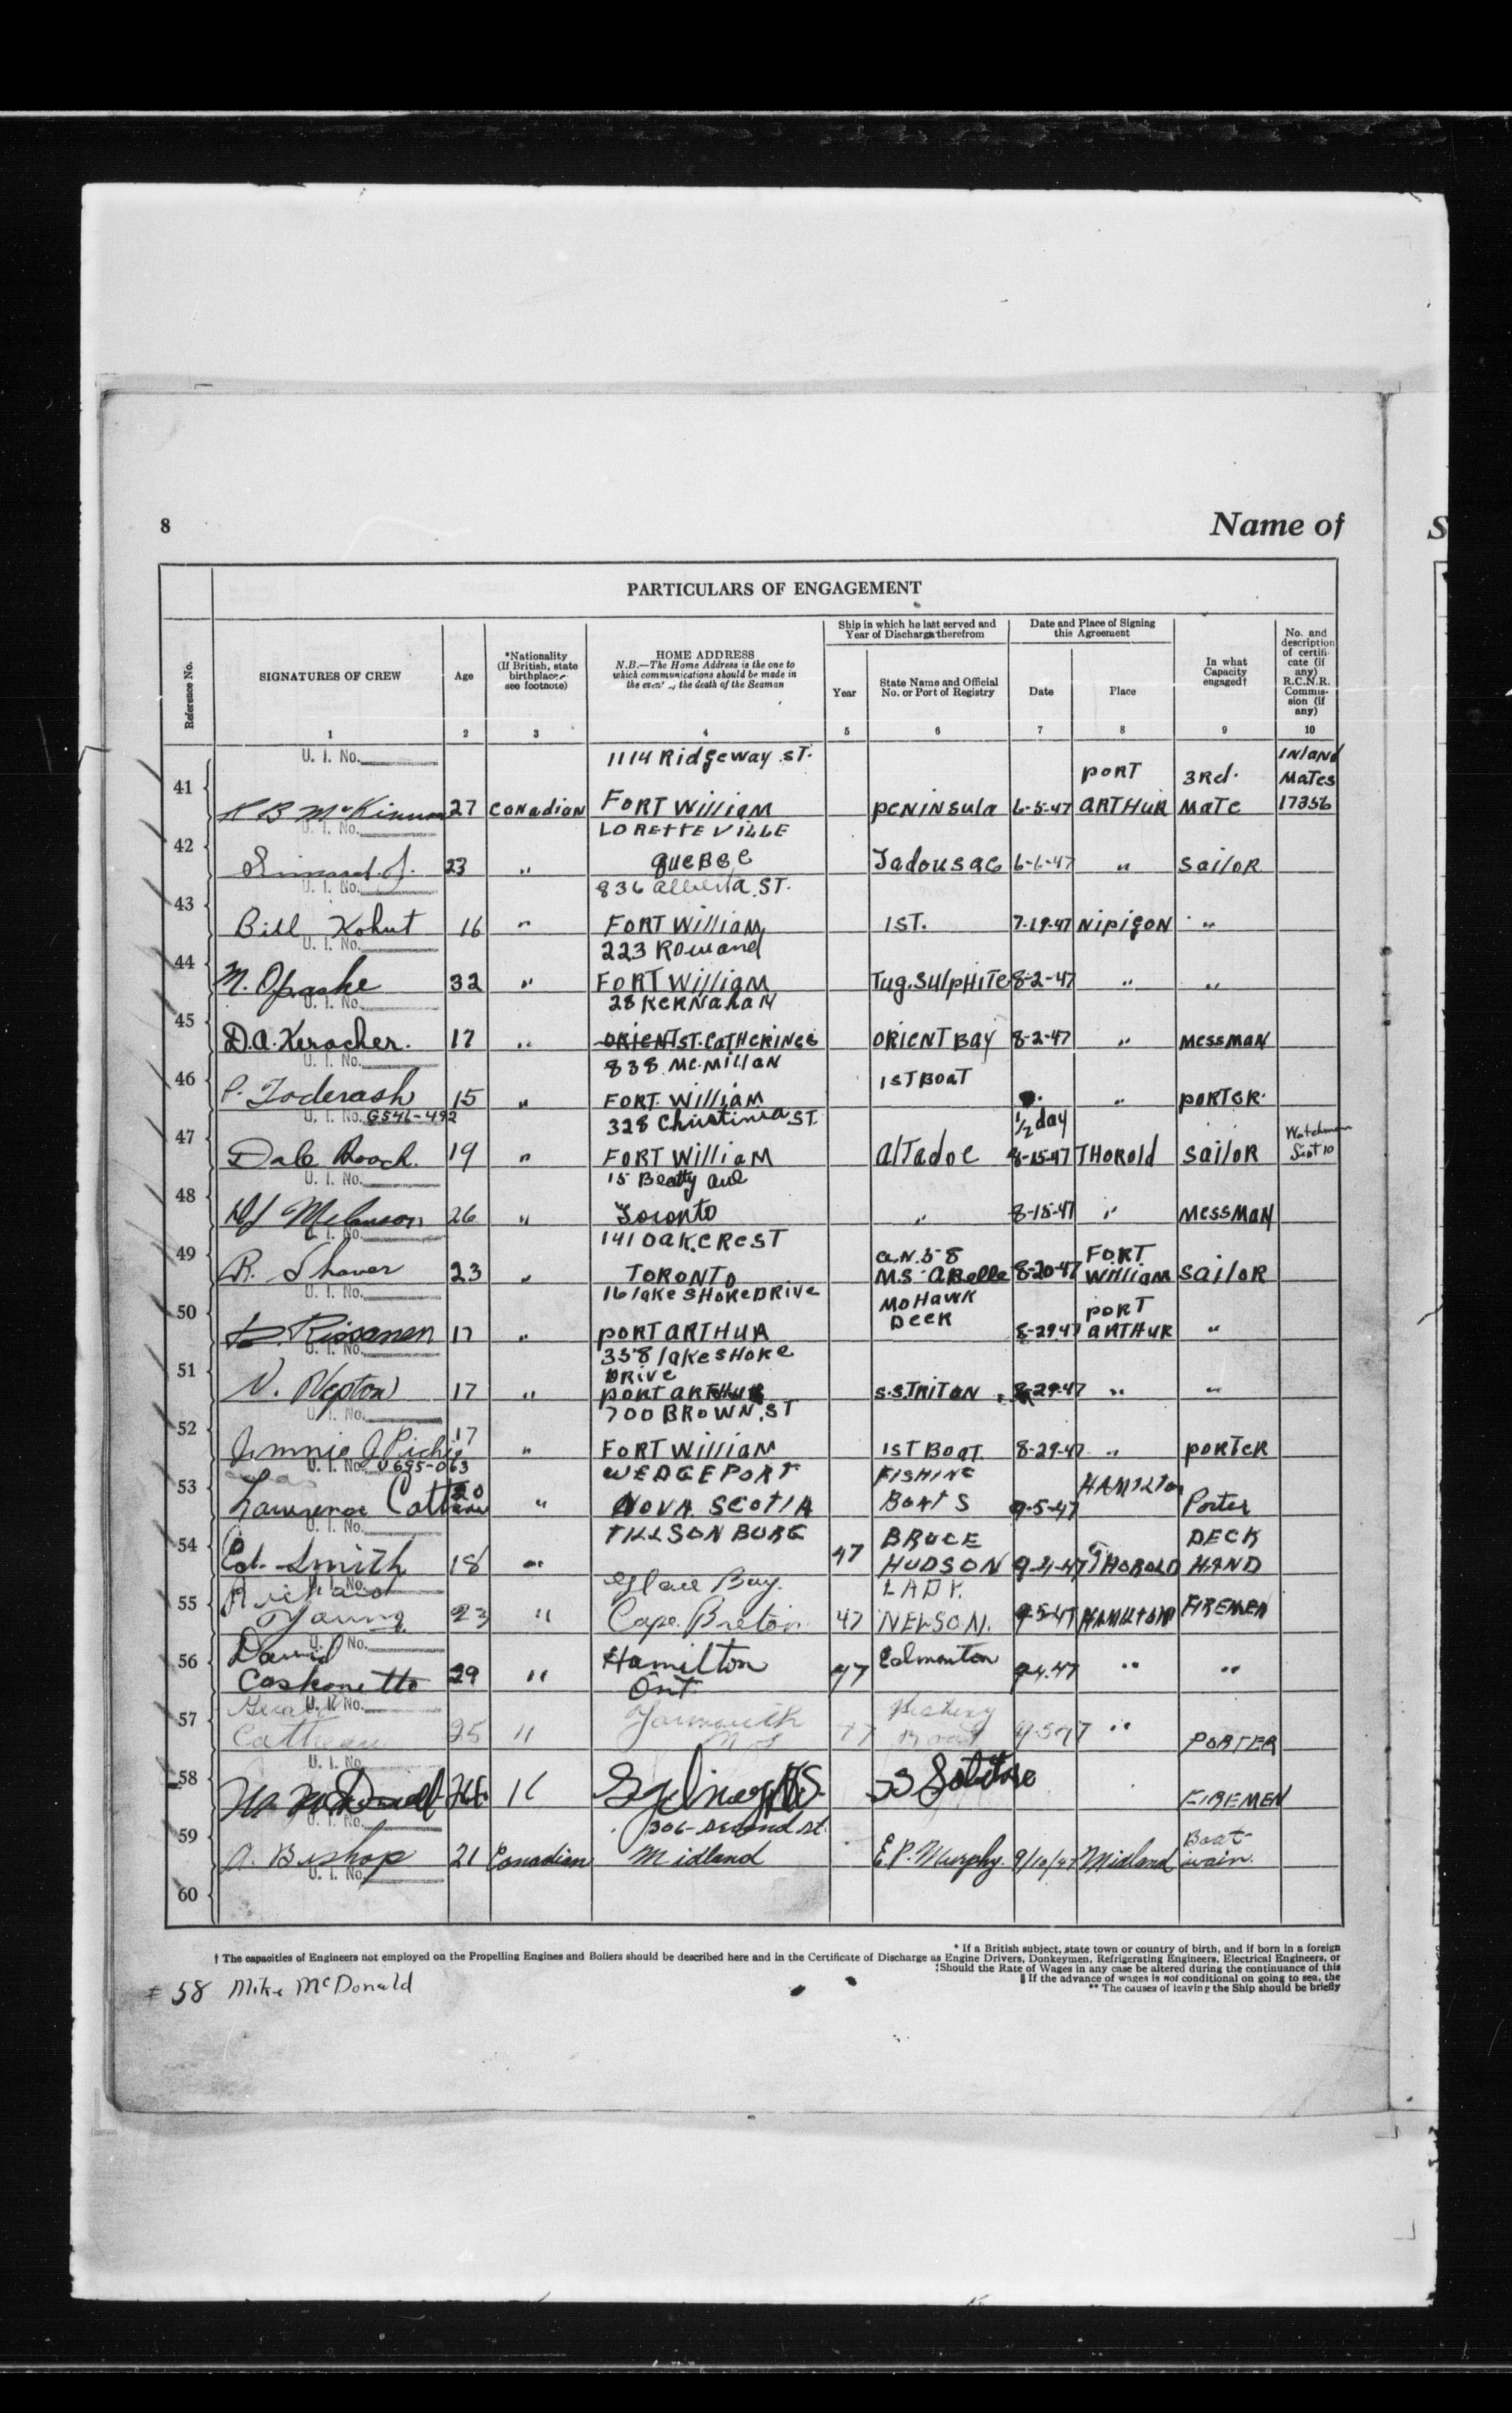 8
Name of
S
PARTICULARS OF ENGAGEMENT
Reference No.
SIGNATURES OF CREW
1
Age
2
*Nationality
(If British, state
birthplace,
see footnote)
3
HOME ADDRESS
N.B.—The Home Address is the one to
which communications should be made in
the event of the death of the Seaman
4
Ship in which he last served and
Year of Discharge therefrom
Year
5
State Name and Official
No. or Port of Registry
6
Date and Place of Signing
this Agreement
Date
7
Place
8
In what
Capacity
engaged†
9
No. and
description
of certifi-
cate (if
any)
R.C.N.R.
Commis-
sion (if
any)
10
U. I. No.
1114 Ridgeway ST. PORT 3Rd. INLAND MATES
41 R B McKinnon 27 CANADIAN FORT WILLIAM PENINSULA 6-5-47 ARTHUR MATE 17356
U. I. No. LORETTEVILLE
42 Simard. J. 23 " QUEBEC Tadousac 6-6-47 " SAILOR
U. I. No. 836 alberta ST.
43 Bill Kohut 16 " FORT WILLIAM 1ST. 7-19-47 NIPIGON "
U. I. No. 223 Rowand
44 N. Opashe 32 " FORT WILLIAM TUG. SULPHITE 8-2-47 " "
U. I. No. 28 KERNAHAN
45 D.A. Kerocher. 17 " ORIENT ST. CATHERINES ORIENT BAY 8-2-47 " MESSMAN
U. I. No. 838 MCMILLAN 1ST BOAT
46 P. Toderash 15 " FORT. WILLIAM " PORTER.
U. I. No. G546-492 328 Christina ST. 1/2 day Watchman
47 Dale Roach. 19 " FORT WILLIAM ALTADOC 8-15-47 THOROLD SAILOR
U. I. No. 15 Beatty ave
48 Melanson 26 " Toronto " 8-15-47 " MESSMAN
U. I. No. 141 OAKCREST C.N. 58 FORT
49 R. Shaver 23 " TORONTO M.S. ABELLE 8-20-47 WILLIAM SAILOR
U. I. No. 16 LAKE SHORE DRIVE MOHAWK DEER PORT
50 Rissanen 17 " PORT ARTHUR 8-29-47 ARTHUR "
U. I. No. 358 LAKESHORE DRIVE
51 N. Nepton 17 " PORT ARTHUR S.S. TRITON 8-29-47 " "
U. I. No. 700 BROWN. ST
52 Jimmie J Pichie 17 " FORT WILLIAM 1ST BOAT 8-29-47 " PORTER
U. I. No. U695-063 WEDGEPORT FISHING HAMILTON
53 Lawrence 20 " NOVA SCOTIA BOATS 9-5-47 Porter
U. I. No. TILLSONBURG BRUCE DECK
54 Ed. Smith 18 " 47 HUDSON 9-4-47 THOROLD HAND
U. I. No. Richard Glace Bay. LADY.
55 Young 23 " Cape Breton 47 NELSON. 9-5-47 HAMILTON FIREMEN
U. I. No. David Hamilton Edmonton
56 Caskonette 29 " Ont 47 9-4-47 " "
U. I. No. Yarmouth
57 25 " N S 47 Boat 9-5-47 " PORTER
U. I. No.
58 M. McDonald 26 " Sydney N.S. SS FIREMEN
U. I. No. 306- second st. Boat-
59 A. Bishop 21 Canadian Midland E.P. Murphy. 9/10/47 Midland swain.
U. I. No.
60
* If a British subject, state town or country of birth, and if born in a foreign
† The capacities of Engineers not employed on the Propelling Engines and Boilers should be described here and in the Certificate of Discharge as Engine Drivers, Donkeymen, Refrigerating Engineers, Electrical Engineers, or
‡Should the Rate of Wages in any case be altered during the continuance of this
‖ If the advance of wages is not conditional on going to sea, the
** The causes of leaving the Ship should be briefly
# 58 Mike McDonald